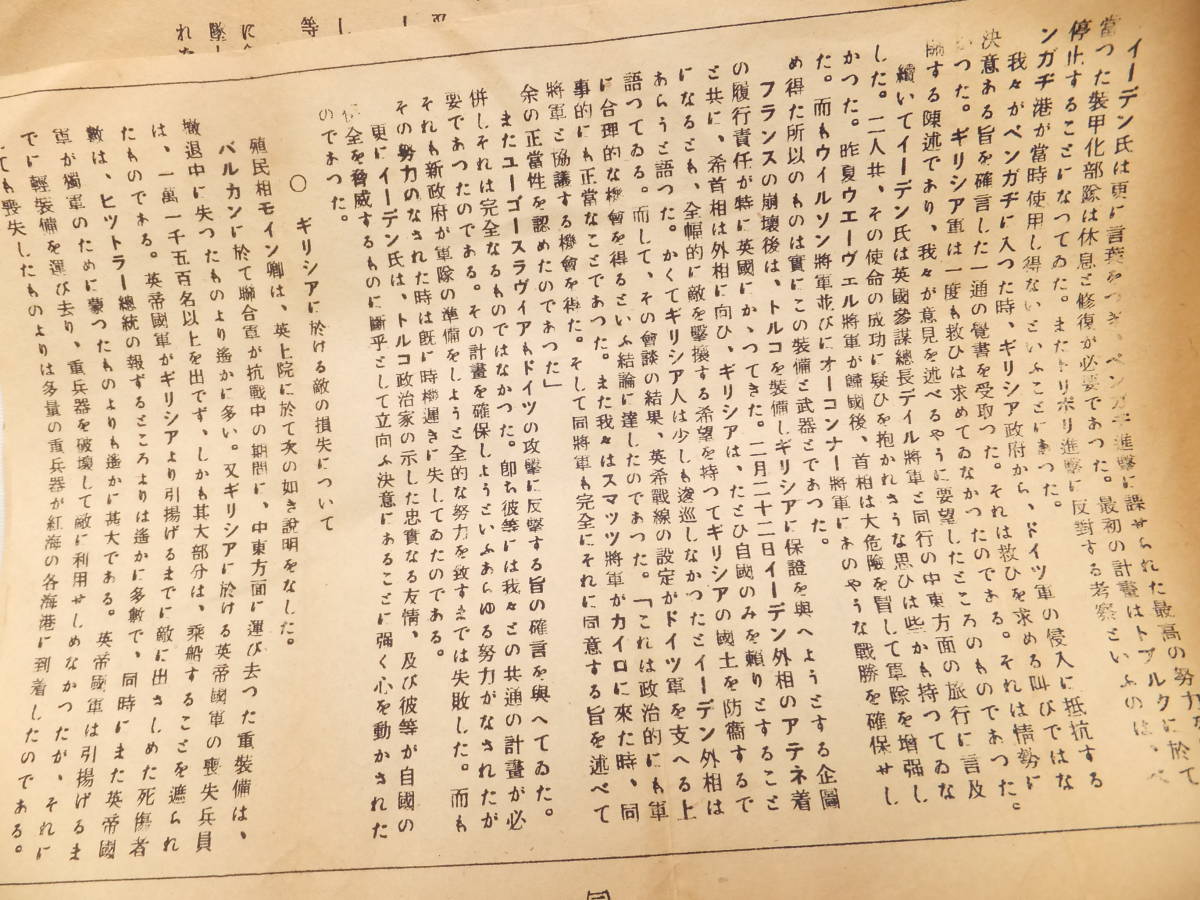 イーデン氏は更に言葉をつぎ、ベンガヂ進撃に課せられた最高の努力を
當つた裝甲化部隊は休息と修復が必要であつた。最初の計畫はトブルクに於て
停止することになつてゐた。またトリポリ進撃に反對する考察といふのは、ベ
ンガヂ港が當時使用し得ないといふことにあつた。
我々がベンガヂに入つた時、ギリシア政府から、ドイツ軍の侵入に抵抗する
決意ある旨を確言した一通の覺書を受取つた。それは救ひを求める叫びではな
かつた。ギリシア軍は一度も救ひは求めてゐなかつたのである。それは情勢に
關する陳述であり、我々が意見を述べるやうに要望したところのものであつた。
續いてイーデン氏は英國參謀總長デイル將軍と同行の中東方面の旅行に言及
した。二人共、その使命の成功に疑ひを抱かれさうな思ひは些かも持つてゐな
かつた。昨夏ウエーヴエル將軍が歸國後、首相は大危險を冒して軍隊を增强し
た。而もウイルソン將軍並びにオーコンナー將軍にあのやうな戰勝を確保せし
め得た所以のものは實にこの裝備と武器とであつた。
フランスの崩壞後は、トルコを裝備しギリシアに保證を與へようとする企圖
の履行責任が特に英國にかゝつてきた。二月二十二日イーデン外相のアテネ着
と共に、希首相は外相に向ひ、ギリシアは、たとひ自國のみを賴りとすること
になるとも、全幅的に敵を擊攘する希望を持つてギリシアの國土を防衞するで
あらうと語つた。かくてギリシア人は少しも逡巡しなかつたとイーデン外相は
語つてゐる。而して、その會談の結果、英希戰線の設定がドイツ軍を支へる上
に合理的な機會を得るといふ結論に達したのであつた。「これは政治的にも軍
事的にも正當なことであつた。また我々はスマツツ將軍がカイロに來た時、同
將軍と協議する機會を得た。そして同將軍も完全にそれに同意する旨を述べて
余の正當性を認めたのであつた」
またユーゴースラヴイアもドイツの攻擊に反擊する旨の確言を與へてゐた。
併しそれは完全なるものではなかつた。卽ち彼等には我々との共通の計畫が必
要であつたのである。その計畫を確保しようといふあらゆる努力がなされたが
それも新政府が軍隊の準備をしようと全的な努力を致すまでは失敗した。而も
その努力のなされた時は旣に時機遲きに失してゐたのである。
更にイーデン氏は、トルコ政治家の示した忠實なる友情、及び彼等が自國の
全を脅威するものに斷乎として立向ふ決意にあることに强く心を動かされた
のであつた。
〇　ギリシアに於ける敵の損失について
殖民相モイン卿は、英上院に於て次の如き說明をなした。
バルカンに於て聯合軍が抗戰中の期間に、中東方面に運び去つた重裝備は、
撤退中に失つたものより遙かに多い。又ギリシアに於ける英帝國軍の喪失兵員
は、一萬一千五百名以上を出でず、しかも其大部分は、乘船することを遮られ
たものである。英帝國軍がギリシアより引揚げるまでに敵に出さしめた死傷者
數は、ヒツトラー總統の報ずるところよりは遙かに多數で、同時にまた英帝國
軍が獨軍のために蒙つたものよりも遙かに甚大である。英帝國軍は引揚げるま
でに輕裝備を運び去り、重兵器を破壞して敵に利用せしめなかつたが、それに
ても喪失したものよりは多量の重兵器が紅海の各海港に到着したのである。